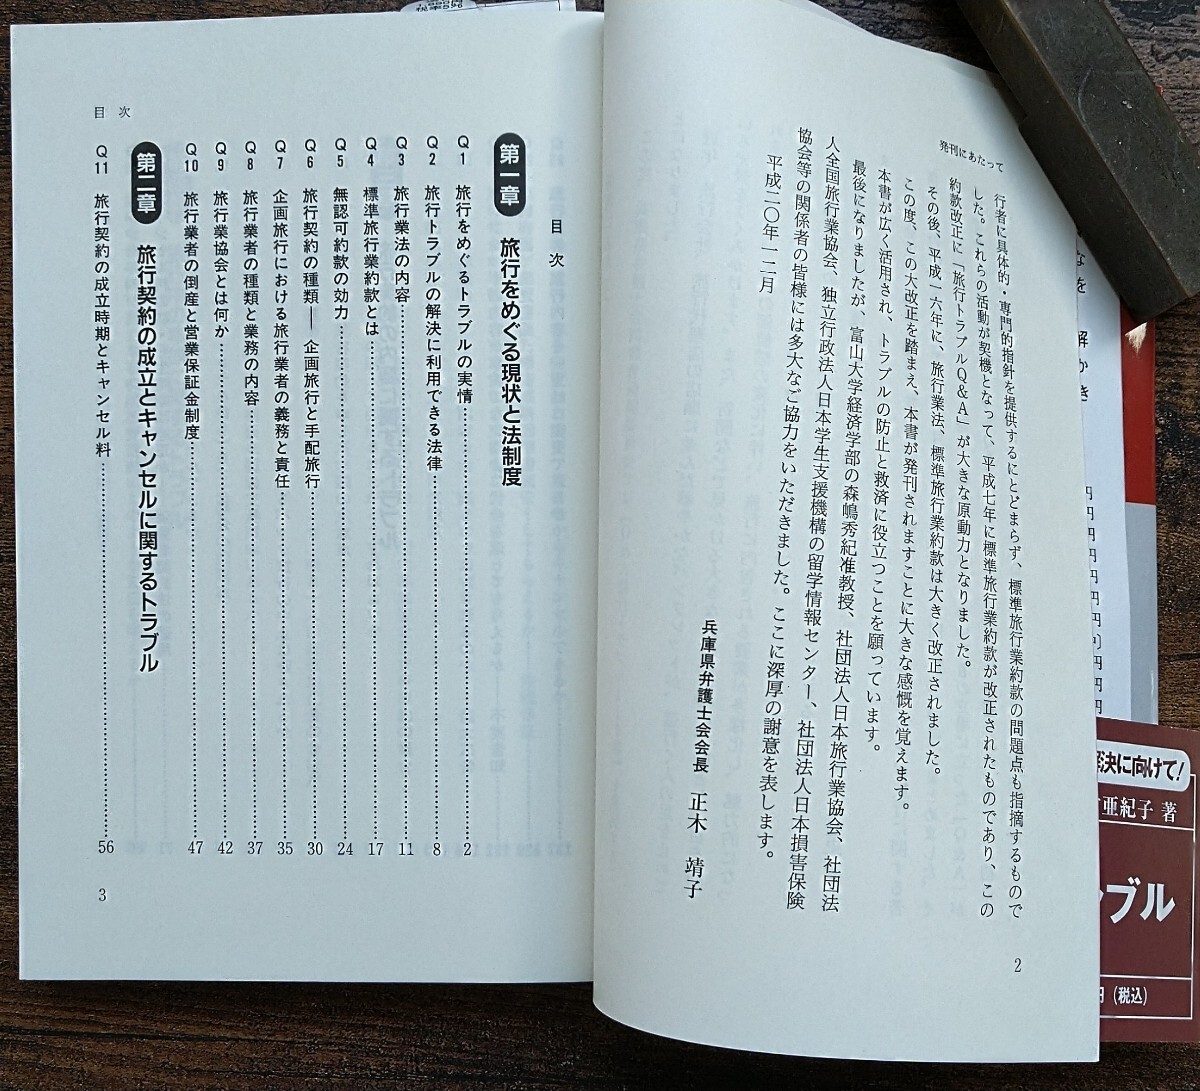 発刊にあたって
行者に具体的・専門的指針を提供するにとどまらず、標準旅行業約款の問題点も指摘するもので
した。これらの活動が契機となって、平成七年に標準旅行業約款が改正されたものであり、この
約款改正に「旅行トラブルQ&A」が大きな原動力となりました。
その後、平成一六年に、旅行業法、標準旅行業約款は大きく改正されました。
この度、この大改正を踏まえ、本書が発刊されますことに大きな感慨を覚えます。
本書が広く活用され、トラブルの防止と救済に役立つことを願っています。
最後になりましたが、富山大学経済学部の森嶋秀紀准教授、社団法人日本旅行業協会、社団法
人全国旅行業協会、独立行政法人日本学生支援機構の留学情報センター、社団法人日本損害保険
協会等の関係者の皆様には多大なご協力をいただきました。ここに深厚の謝意を表します。
平成二〇年一二月
兵庫県弁護士会会長 正木 靖子
2
目次
目次
第一章 旅行をめぐる現状と法制度
Q1 旅行をめぐるトラブルの実情 2
Q2 旅行トラブルの解決に利用できる法律 8
Q3 旅行業法の内容 11
Q4 標準旅行業約款とは 17
Q5 無認可約款の効力 24
Q6 旅行契約の種類──企画旅行と手配旅行 30
Q7 企画旅行における旅行業者の義務と責任 35
Q8 旅行業者の種類と業務の内容 37
Q9 旅行業協会とは何か 42
Q10 旅行業者の倒産と営業保証金制度 47
第二章 旅行契約の成立とキャンセルに関するトラブル
Q11 旅行契約の成立時期とキャンセル料 56
3
決に向けて!
亜紀子 著
ブル
円(税込)